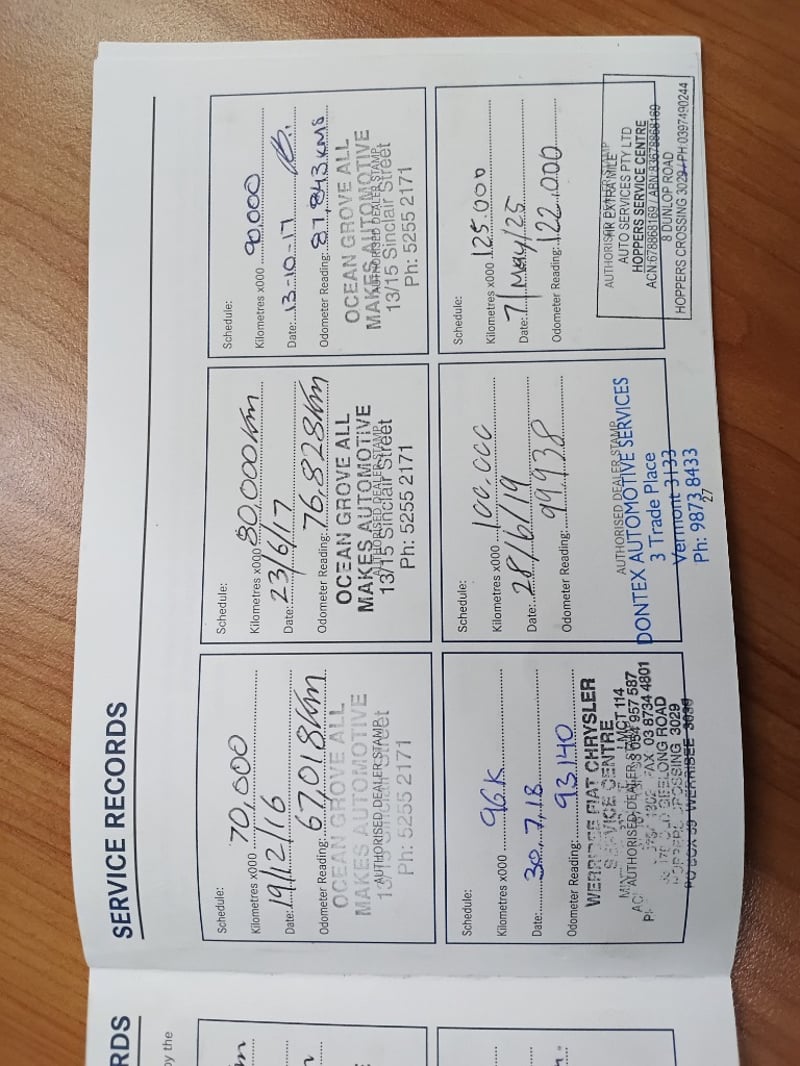 SERVICE RECORDS
Schedule:
Kilometres x000 70,000
Date: 19/12/16
Odometer Reading: 67,018km
OCEAN GROVE ALL
MAKES AUTOMOTIVE
AUTHORISED DEALER STAMP
13/15 Sinclair Street
Ph: 5255 2171
Schedule:
Kilometres x000 80,000km
Date: 23/6/17
Odometer Reading: 76,828km
OCEAN GROVE ALL
MAKES AUTOMOTIVE
AUTHORISED DEALER STAMP
13/15 Sinclair Street
Ph: 5255 2171
Schedule:
Kilometres x000 90,000
Date: 13-10-17
Odometer Reading: 87,843 KMS
OCEAN GROVE ALL
MAKES AUTOMOTIVE
AUTHORISED DEALER STAMP
13/15 Sinclair Street
Ph: 5255 2171
Schedule:
Kilometres x000 96K
Date: 30.7.18
Odometer Reading: 93140
WERRIBEE FIAT CHRYSLER
SERVICE CENTRE
LMCT 114
AUTHORISED DEALER STAMP 957 587
FAX 03 8734 4801
GEELONG ROAD
HOPPERS CROSSING 3029
PO BOX 39 WERRIBEE 3030
Schedule:
Kilometres x000 100,000
Date: 28/6/19
Odometer Reading: 99938
AUTHORISED DEALER STAMP
DONTEX AUTOMOTIVE SERVICES
3 Trade Place
Vermont 3133
Ph: 9873 8433
27
Schedule:
Kilometres x000 125.000
Date: 7/May/25
Odometer Reading: 122.000
AUTHORISED DEALER STAMP
HR EXTRA MILE
AUTO SERVICES PTY LTD
HOPPERS SERVICE CENTRE
ACN:678868169 / ABN:83678868169
8 DUNLOP ROAD
HOPPERS CROSSING 3029 PH:0397490244
RDS
by the